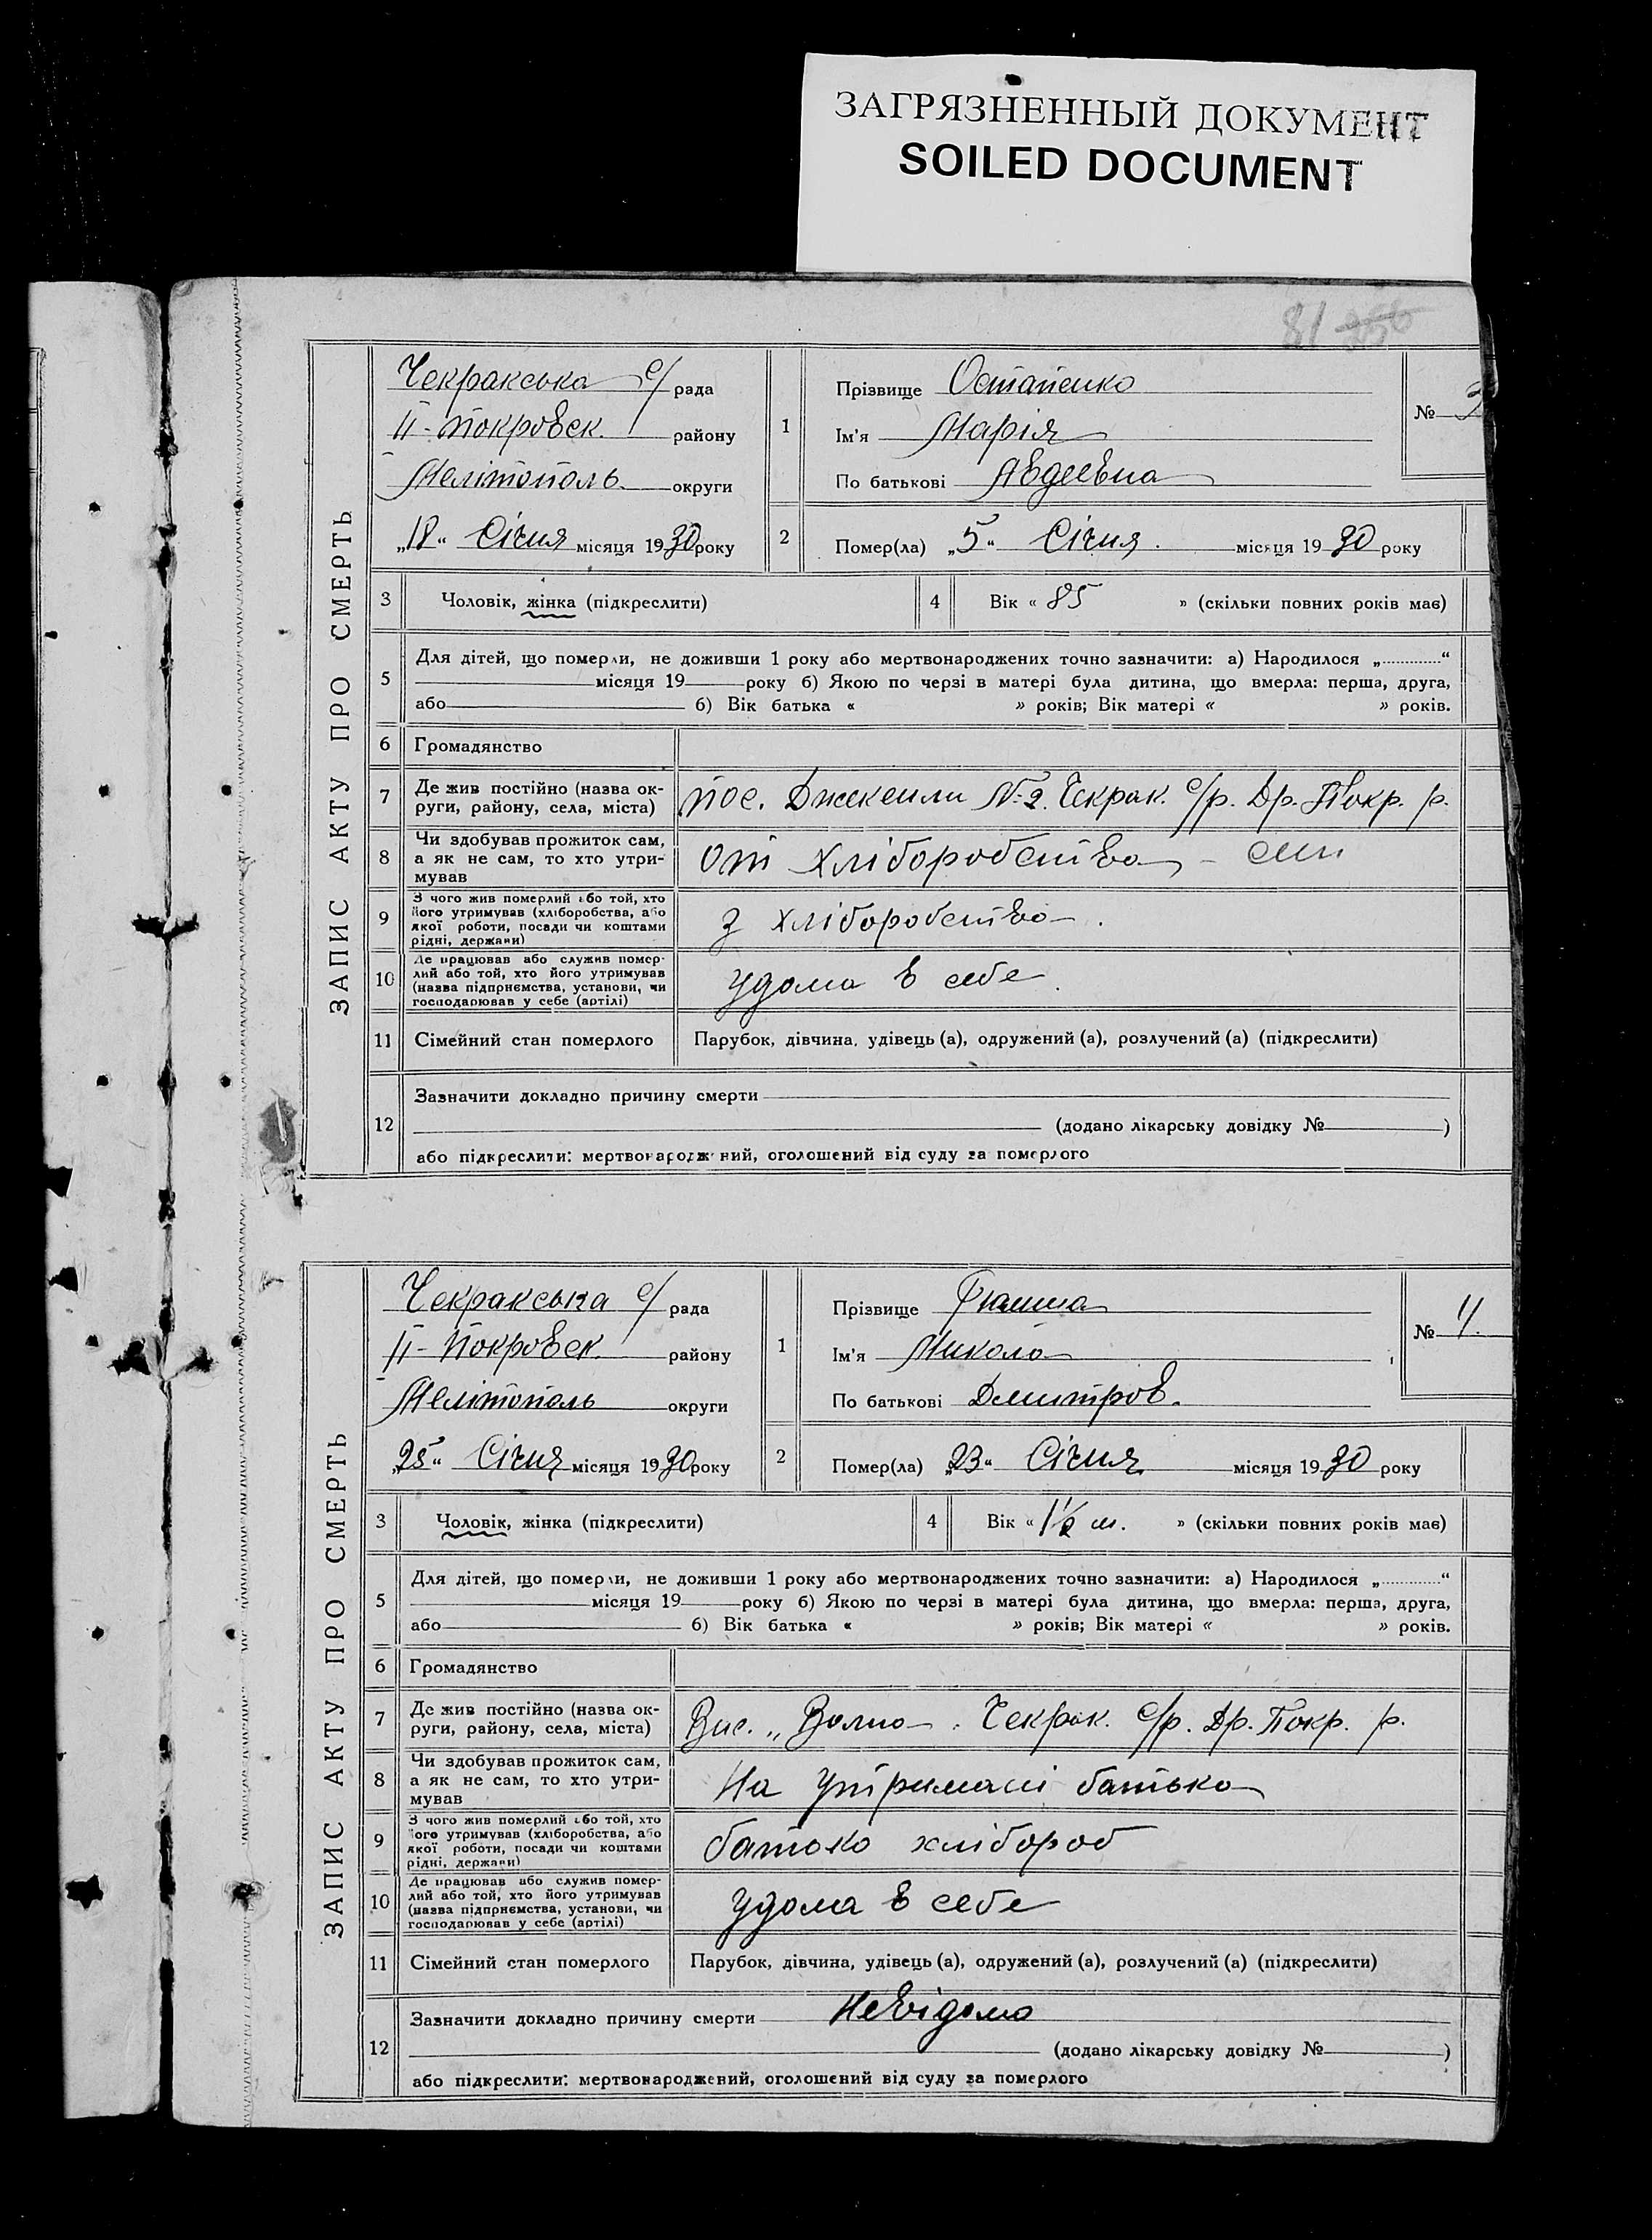 ЗАГРЯЗНЕННЫЙ ДОКУМЕНТ
SOILED DOCUMENT
81
ЗАПИС АКТУ ПРО СМЕРТЬ
Чекракська с/ рада
II-Покровск. району
Мелітополь округи
„18“ Січня місяця 1930 року
1
Прізвище Остапенко
Ім'я Марія
По батькові Авдеевна
№ 3
2
Помер(ла) „5“ Січня. місяця 1930 року
3 Чоловік, жінка (підкреслити)
4 Вік « 85 » (скільки повних років має)
5
Для дітей, що померли, не доживши 1 року або мертвонароджених точно зазначити: а) Народилося „............“
місяця 19 року б) Якою по черзі в матері була дитина, що вмерла: перша, друга,
або б) Вік батька « » років; Вік матері « » років.
6 Громадянство
7
Де жив постійно (назва ок-
руги, району, села, міста)
пос. №2. Чекрак. с/р. Др. Покр. р.
8
Чи здобував прожиток сам,
а як не сам, то хто утри-
мував
от хліборобства –
9
З чого жив померлий або той, хто
його утримував (хліборобства, або
якої роботи, посади чи коштами
рідні, держави)
з хліборобства.
10
Де працював або служив помер-
лий або той, хто його утримував
(назва підприємства, установи, чи
господарював у себе (артілі)
удома в себе.
11 Сімейний стан померлого
Парубок, дівчина, удівець (а), одружений (а), розлучений (а) (підкреслити)
12
Зазначити докладно причину смерти
(додано лікарську довідку № )
або підкреслити: мертвонароджений, оголошений від суду за померлого
ЗАПИС АКТУ ПРО СМЕРТЬ
Чекракська с/ рада
II-Покровск. району
Мелітополь округи
„25“ Січня місяця 1930 року
1
Прізвище
Ім'я Микола
По батькові Дмитров.
№ 4.
2
Помер(ла) „23“ Січня місяця 1930 року
3 Чоловік, жінка (підкреслити)
4 Вік « 1½ м. » (скільки повних років має)
5
Для дітей, що померли, не доживши 1 року або мертвонароджених точно зазначити: а) Народилося „............“
місяця 19 року б) Якою по черзі в матері була дитина, що вмерла: перша, друга,
або б) Вік батька « » років; Вік матері « » років.
6 Громадянство
7
Де жив постійно (назва ок-
руги, району, села, міста)
Вис. „ Волно. Чекрак. с/р. Др. Покр. р.
8
Чи здобував прожиток сам,
а як не сам, то хто утри-
мував
На утримані батька
9
З чого жив померлий або той, хто
його утримував (хліборобства, або
якої роботи, посади чи коштами
рідні, держави)
батько хлібороб
10
Де працював або служив помер-
лий або той, хто його утримував
(назва підприємства, установи, чи
господарював у себе (артілі)
удома в себе
11 Сімейний стан померлого
Парубок, дівчина, удівець (а), одружений (а), розлучений (а) (підкреслити)
12
Зазначити докладно причину смерти Невідома
(додано лікарську довідку № )
або підкреслити: мертвонароджений, оголошений від суду за померлого